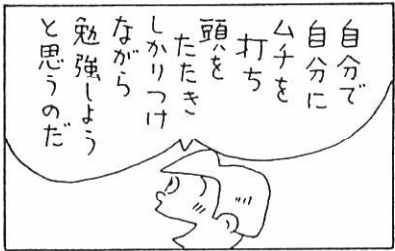 自分で
自分に
ムチを
打ち
頭を
たたき
しかりつけ
ながら
勉強しよう
と思うのだ